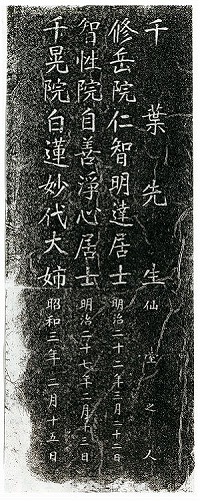 千葉先生仙臺之人
修岳院仁智明達居士明治二十二年三月二十二日
智性院自善淨心居士明治二十七年二月十三日
千晃院白蓮妙代大姉昭和三年二月十五日